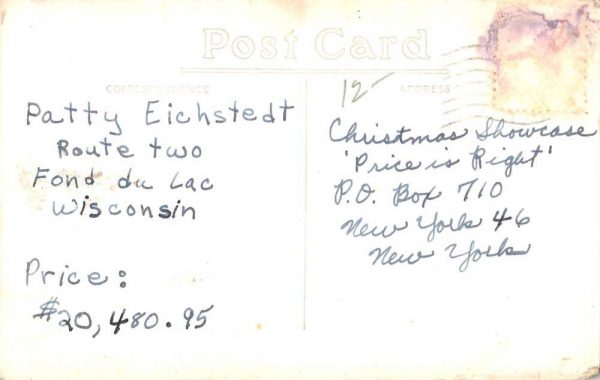 Post Card
CORRESPONDENCE
ADDRESS
12-
Patty Eichstedt
Route two
Fond du Lac
Wisconsin
Price:
$20,480.95
Christmas Showcase
'Price is Right'
P.O. Box 710
New York 46
New York